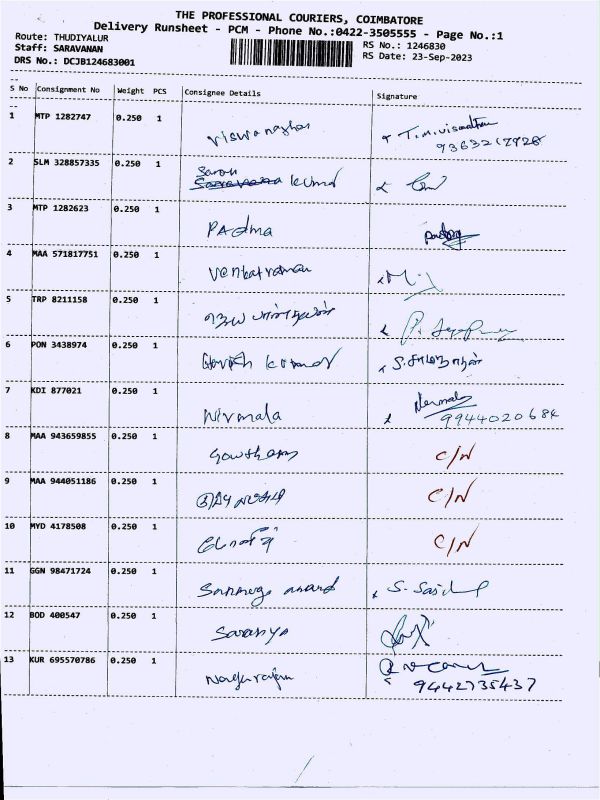 THE PROFESSIONAL COURIERS, COIMBATORE
Delivery Runsheet - PCM - Phone No.:0422-3505555 - Page No.:1
Route: THUDIYALUR
RS No.: 1246830
Staff: SARAVANAN
RS Date: 23-Sep-2023
DRS No.: DCJB124683001
S No Consignment No Weight PCS Consignee Details Signature
1 MTP 1282747 0.250 1
9363217928
2 SLM 328857335 0.250 1 kumar
3 MTP 1282623 0.250 1 PAdma
4 MAA 571817751 0.250 1 Venkatraman
5 TRP 8211158 0.250 1
6 PON 3438974 0.250 1 kumar
7 KDI 877021 0.250 1 Nirmala Nirmala
9944020684
8 MAA 943659855 0.250 1 Gowtham C/N
9 MAA 944051186 0.250 1 C/N
10 MYD 4178508 0.250 1 C/N
11 GGN 98471724 0.250 1 anand
12 BOD 400547 0.250 1 Saranya
13 KUR 695570786 0.250 1 Nagarajan
9442735437